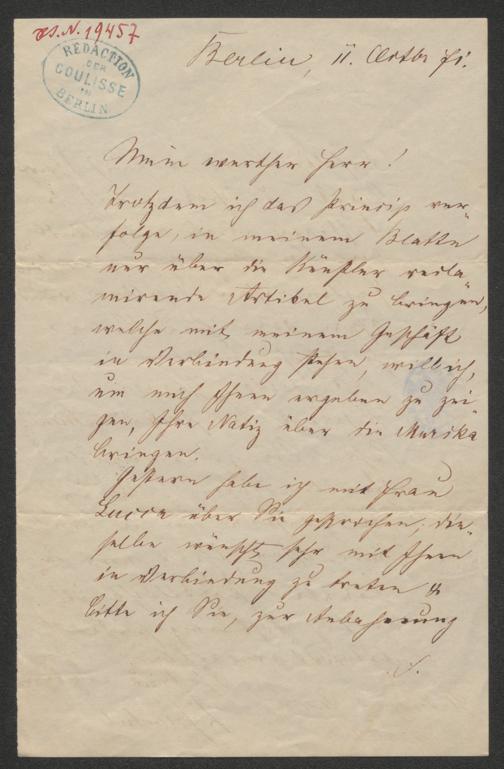 J.N. 19457
REDACTION
DER
COULISSE
IN
BERLIN
Berlin, 11. Octbr 71.
Mein werther Herr!
Trotzdem ich das Princip ver-
folge, in meinem Blatte
nur über die Künstler recla-
mirende Artikel zu bringen,
welche mit meinem Geschäft
in Verbindung stehen, will ich,
um mich Ihnen ergeben zu zei-
gen, Ihre Notiz über die Mariska
bringen.
Gestern habe ich mit Frau
Lucca über Sie gesprochen; die-
selbe wünscht sehr mit Ihnen
in Verbindung zu treten &
bitte ich Sie, zur Anbahnung